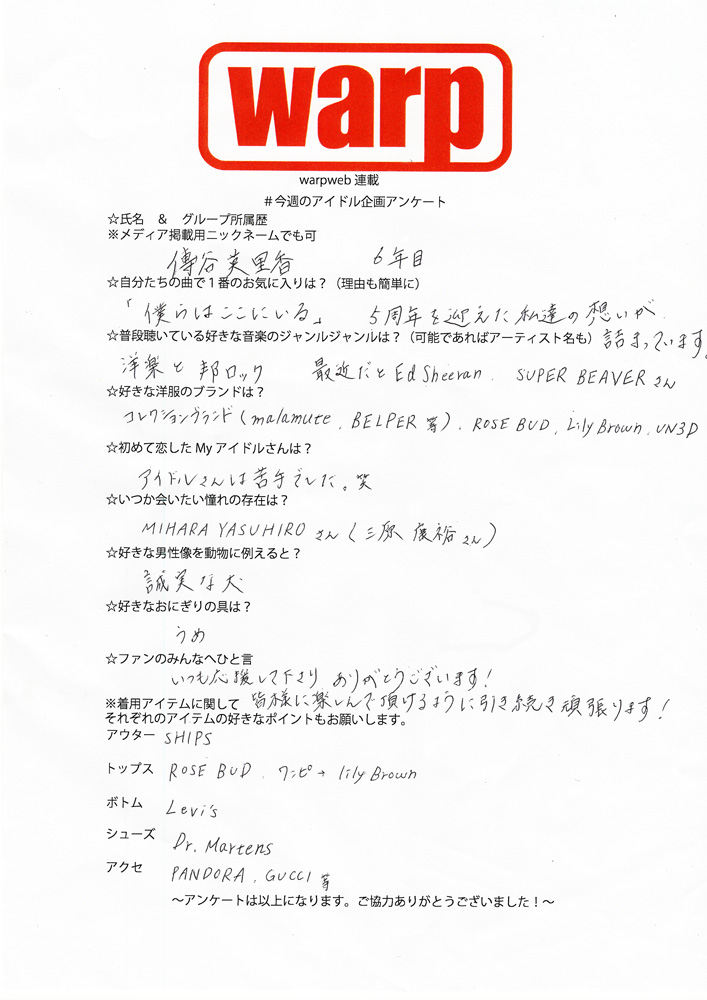 warp
warpweb 連載
＃今週のアイドル企画アンケート
☆氏名　＆　グループ所属歴
※メディア掲載用ニックネームでも可
傳谷英里香　6年目
☆自分たちの曲で１番のお気に入りは？（理由も簡単に）
「僕らはここにいる」　5周年を迎えた私達の想いが
☆普段聴いている好きな音楽のジャンルジャンルは？（可能であればアーティスト名も）詰まっています。
洋楽と邦ロック　最近だと Ed Sheeran. SUPER BEAVERさん
☆好きな洋服のブランドは？
コレクションブランド（malamute. BELPER 等）. ROSE BUD. Lily Brown. UN3D
☆初めて恋した My アイドルさんは？
アイドルさんは苦手でした。笑
☆いつか会いたい憧れの存在は？
MIHARA YASUHIRO さん（三原 康裕さん）
☆好きな男性像を動物に例えると？
誠実な犬
☆好きなおにぎりの具は？
うめ
☆ファンのみんなへひと言
いつも応援して下さり ありがとうございます！
※着用アイテムに関して 皆様に楽しんで頂けるように引き続き頑張ります！
それぞれのアイテムの好きなポイントもお願いします。
アウター SHIPS
トップス ROSE BUD. ワンピ→ lily Brown
ボトム Levi's
シューズ Dr. Martens
アクセ PANDORA. GUCCI 等
～アンケートは以上になります。ご協力ありがとうございました！～